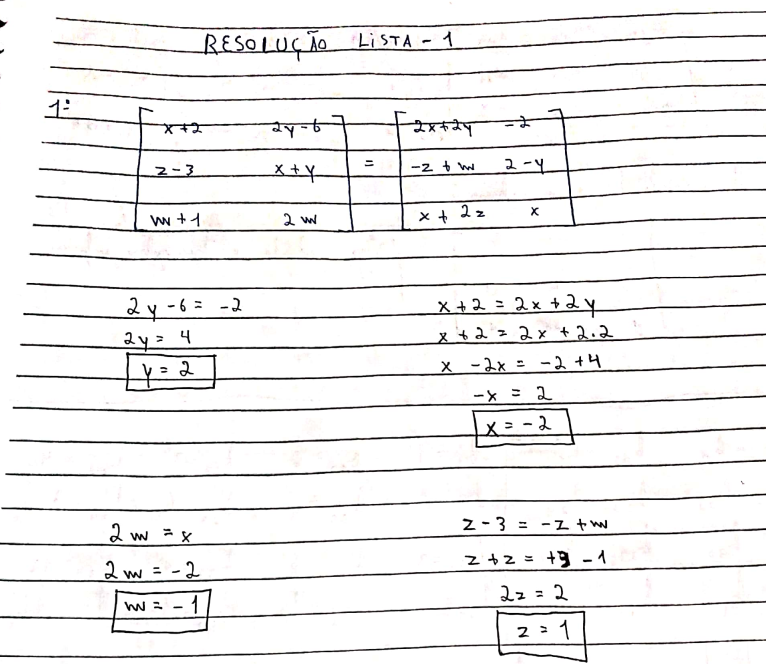 RESOLUÇÃO LISTA - 1
1:
x+2 2y-6 = 2x+2y -2
z-3 x+y -z+w 2-y
w+1 2w x+2z x
2y-6 = -2
2y = 4
y = 2
x+2 = 2x+2y
x+2 = 2x+2.2
x -2x = -2+4
-x = 2
x = -2
2w = x
2w = -2
w = -1
z-3 = -z+w
z+z = +3 -1
2z = 2
z = 1